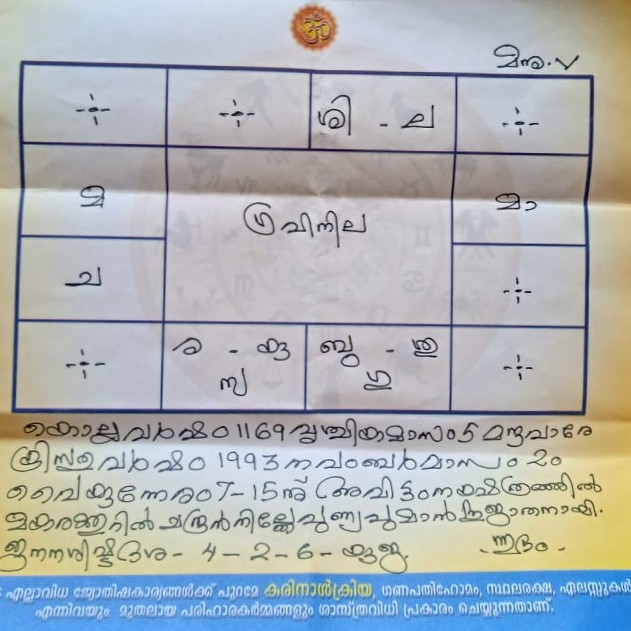 ॐ
മന്ദ. V
ശി - ല
മ
മാ
ഗ്രവിനില
ച
ര - കു
ബു - ശു
സ്വ
ഗു
കൊല്ലവർഷം 1169 വൃശ്ചികമാസം 5 മന്ദവാരേ
ക്രിസ്തുവർഷം 1993 നവംബർമാസം 20
വൈകുന്നേരം 7-15ന് അവിട്ടംനക്ഷത്രത്തിൽ
മകരത്തൂറിൽ ചന്ദ്രൻനില്ക്കേപുണ്യപുമാൻ
ജനനശിഷ്ടദശ - 4 - 2 - 6 - കുജ.
എല്ലാവിധ ജ്യോതിഷകാര്യങ്ങൾക്ക് പുറമേ കരിനാൾക്രിയ, ഗണപതിഹോമം, സ്ഥലരക്ഷ, ഏലസ്സുകൾ
എന്നിവയും മുതലായ പരിഹാരകർമ്മങ്ങളും ശാസ്ത്രവിധി പ്രകാരം ചെയ്യുന്നതാണ്.